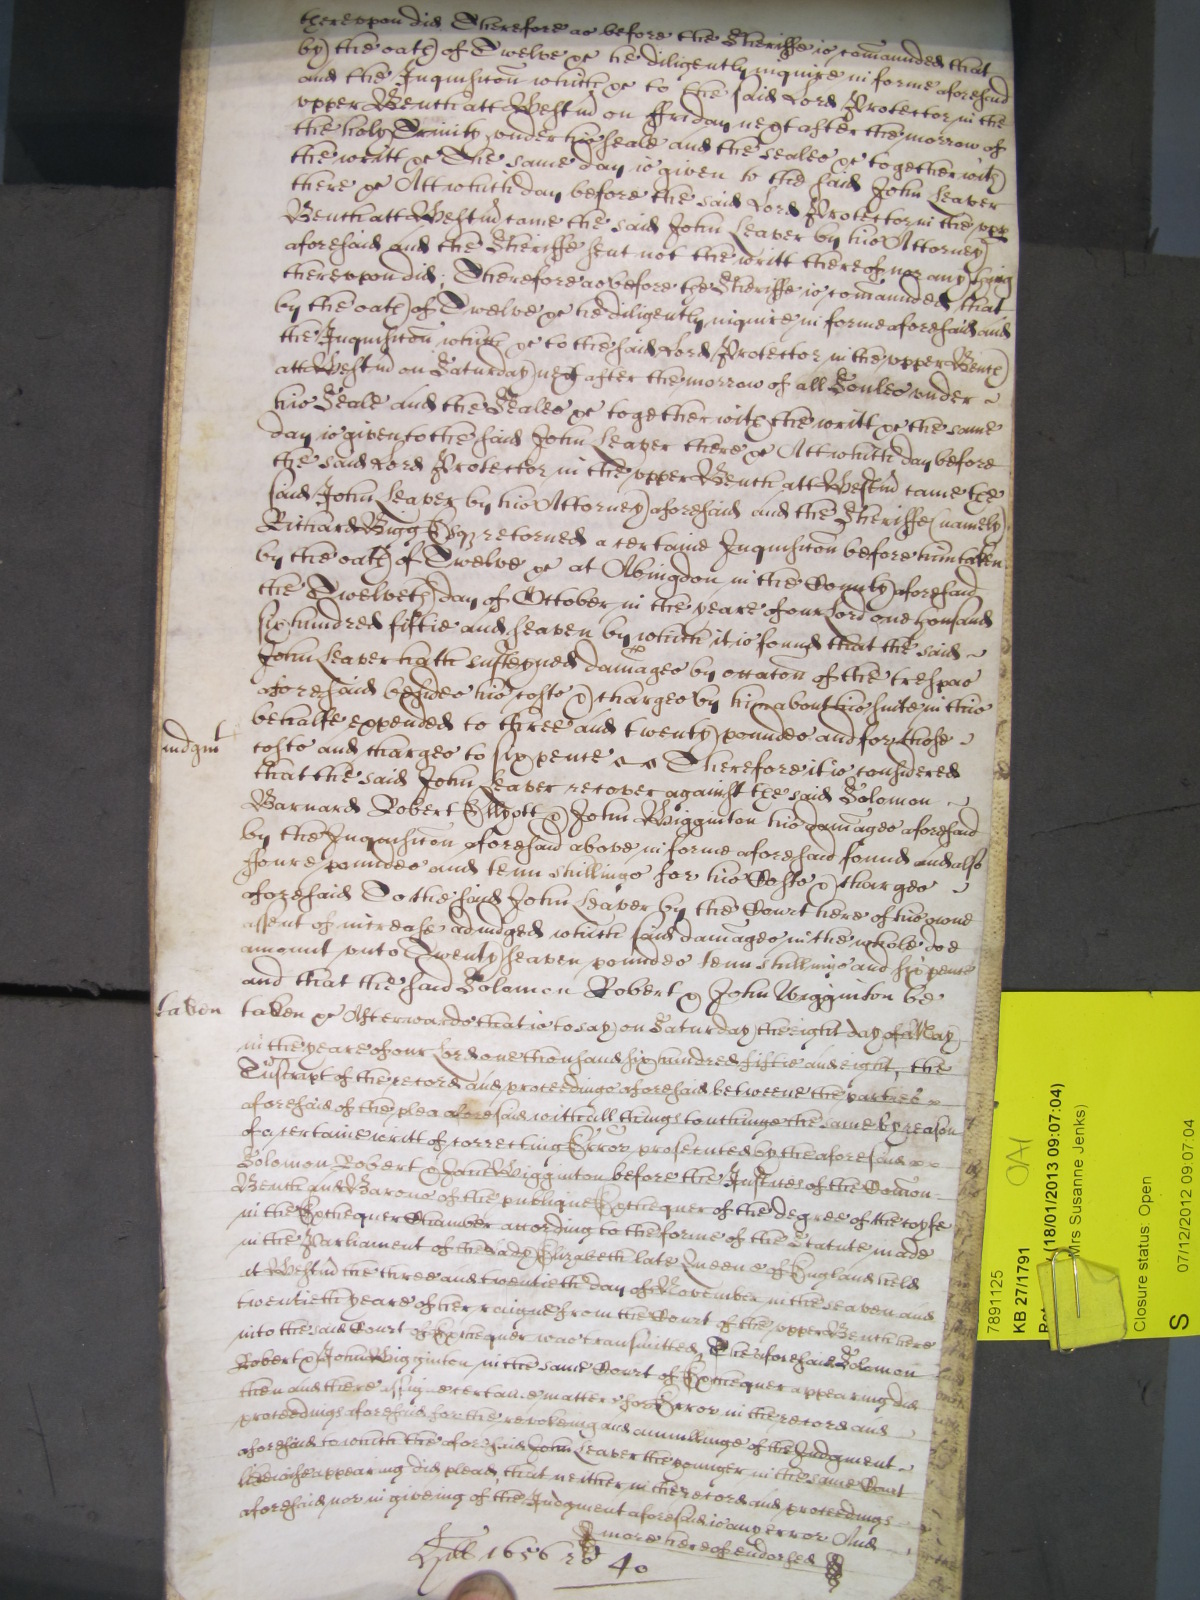 thereupon did Therefore as before the Sheriffe is comaunded that
by the oath of Twelve &c he diligently inquire in forme aforesaid
and the Inquisicon which &c to the said Lord Protector in the
upper Bench att Westmr on ffriday next after the morrow of
the holy Trinity under his seale and the seales &c together with
the writt &c The same day is given to the said John Leaver
there &c Att which day before the said Lord Protector in the upp
Bench att Westmr came the said John Leaver by his Attorney
aforesaid and the Sheriffe sent not the writt thereof nor any thing
thereupon did, Therefore as before the Sheriffe is comaunded that
by the oath of Twelve &c he diligently inquire in forme aforesaid and
the Inquisicon which &c to the said Lord Protector in the upper Bench
att Westmr on Saturday next after the morrow of all Soules under
his Seale and the Seales &c together with the writt &c the same
day is given to the said John Leaver there &c Att which day before
the said Lord Protector in the upper Bench att Westmr came the
said John Leaver by his Attorney aforesaid and the Sheriffe (namely)
Richard Bigg Esqr retorned a certaine Inquisicon before him taken
by the oath of Twelve &c at Abingdon in the County aforesaid
the Twelveth day of October in the yeare of our Lord one thousand
six hundred fiftie and seaven by which it is found that the said
John Leaver hath susteyned damages by occacon of the trespas
aforesaid besides his costs & charges by him about his suite in this
behalfe expended to three and twenty poundes and for those
Judgmt
costs and charges to six pence Therefore it is considered
that the said John Leaver recover against the said Solomon
Barnard Robert Ellyott & John Wigginton his damages aforesaid
by the Inquisicon aforesaid above in forme aforesaid found and also
ffoure poundes and tenn shillings for his Costs & charges
aforesaid To the said John Leaver by the Court here of his owne
assent of increase adiudged which said damages in the whole doe
amount unto Twenty seaven poundes tenn shillings and six pence
and that the said Solomon Robert & John Wigginton be
taken
taken &c Afterwards that is to say on Saturday the eight day of May
in the yeare of our Lord one thousand six hundred fiftie and eight, the
Transcript of the record and proceedings aforesaid betweene the parties
aforesaid of the plea aforesaid with all things touching the same by reason
of a certaine writt of correcting Error prosecuted by the aforesaid
Solomon Robert & John Wigginton before the Justices of the Comon
Bench and Barons of the publique Exchequer of the degree of the coyfe
in the Exchequer Chamber according to the forme of the Statute made
in the Parliament of the Lady Elizabeth late Queene of England held
at Westmr the three and twentieth day of November in the seaven and
twentieth yeare of her raigne from the Court of the upper Bench here
into the said Court of Exchequer was transmitted, The aforesaid Solomon
Robert & John Wigginton in the same Court of Exchequer appearing did
then and there assigne certaine matters for Error in the record and
proceedings aforesaid for the revokeing and annullinge of the Judgment
aforesaid to which the aforesaid John Leaver the younger in the same Court
likewise appearing did plead, that neither in the record and proceedings
aforesaid nor in giveing of the Judgment aforesaid is any error And
more hereof endorsed
Hill 1656 40
7891125
KB 27/1791
(18/01/2013 09:07:04)
Mrs Susanne Jenks)
Closure status: Open
S
07/12/2012 09:07:04